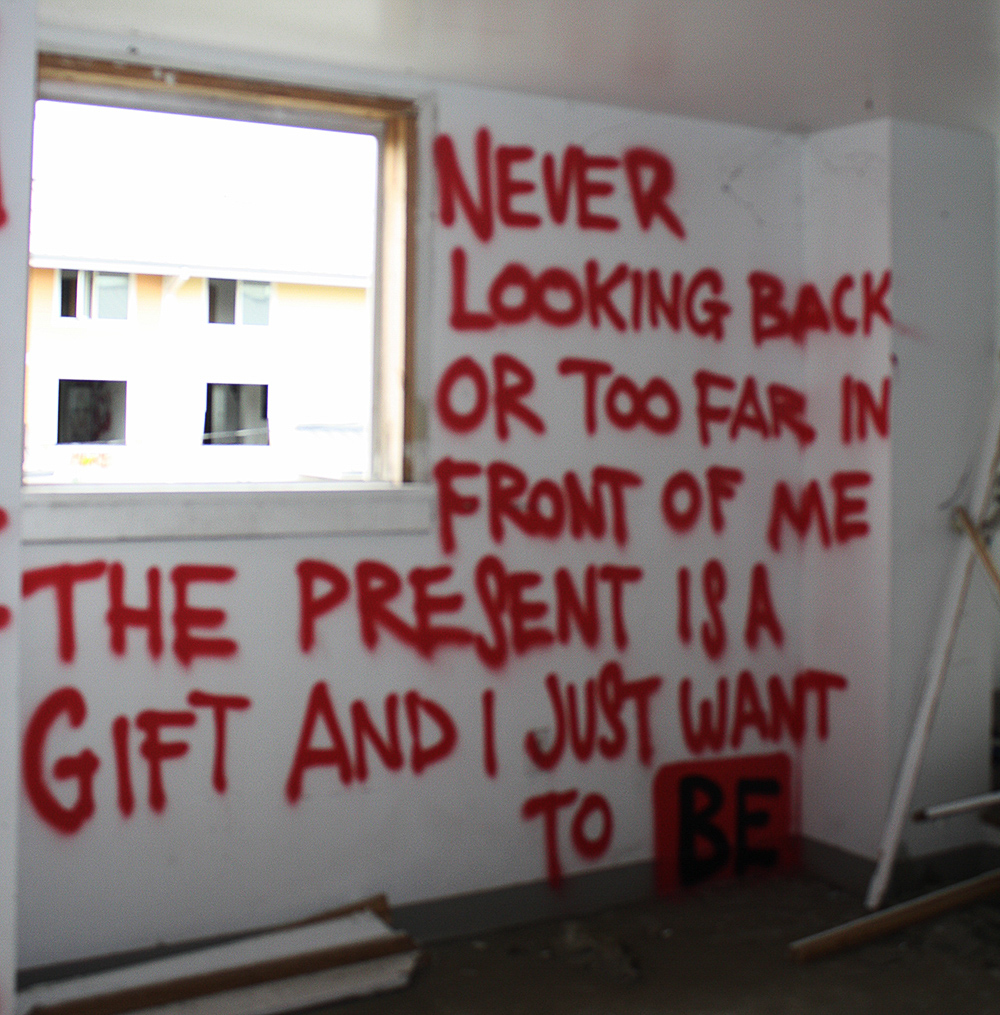 NEVER
LOOKING BACK
OR TOO FAR IN
FRONT OF ME
THE PRESENT IS A
GIFT AND I JUST WANT
TO BE